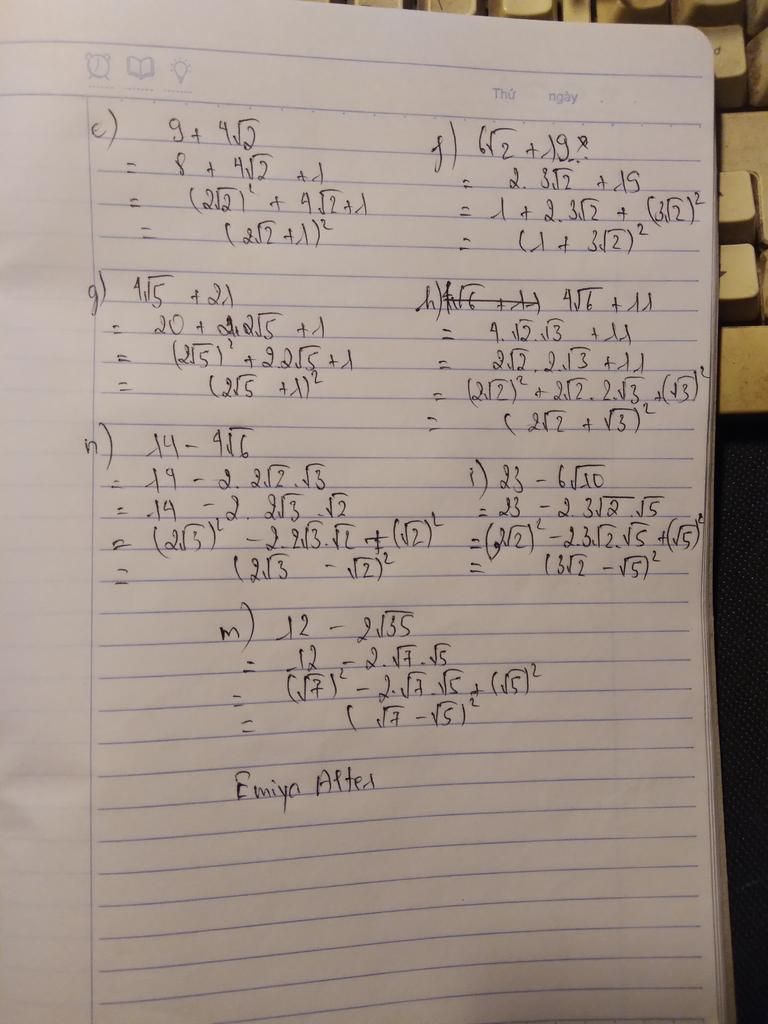 Thứ ngày
e) 9 + 4√2
= 8 + 4√2 + 1
= (2√2)² + 4√2 + 1
= (2√2 + 1)²
f) 6√2 + 19
= 2. 3√2 + 19
= 1 + 2. 3√2 + (3√2)²
= (1 + 3√2)²
g) 4√5 + 21
= 20 + 2.2√5 + 1
= (2√5)² + 2.2√5 + 1
= (2√5 + 1)²
h) 4√6 + 11
= 4.√2.√3 + 11
= 2√2. 2.√3 + 11
= (2√2)² + 2√2. 2.√3 + (√3)²
= (2√2 + √3)²
n) 14 - 4√6
= 14 - 2. 2√2.√3
= 14 - 2. 2√3.√2
= (2√3)² - 2.2√3.√2 + (√2)²
= (2√3 - √2)²
i) 23 - 6√10
= 23 - 2.3√2.√5
= (2√2)² - 2.3√2.√5 + (√5)²
= (3√2 - √5)²
m) 12 - 2√35
= 12 - 2.√7.√5
= (√7)² - 2.√7.√5 + (√5)²
= (√7 - √5)²
Emiya Alter